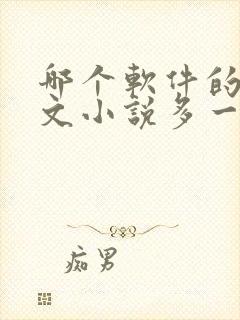 那个軟件的
文小說多一
痴男